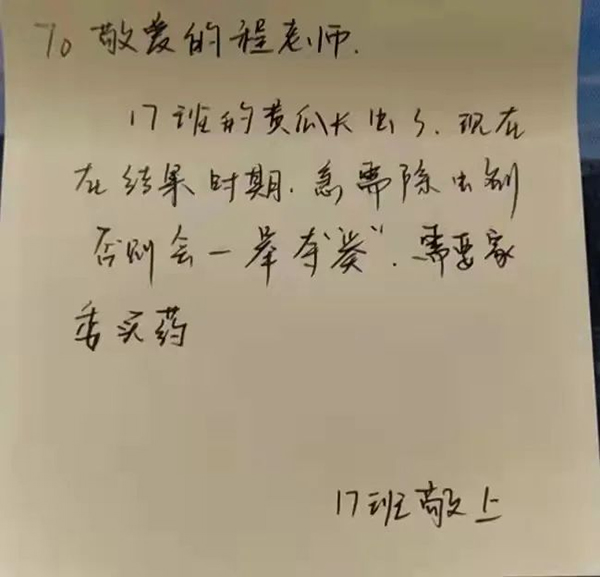 To 敬爱的程老师.
17班的黄瓜长虫了.现在
在结果时期.急需除虫剂
否则会一举夺"粪".需要家
委买药
17班敬上